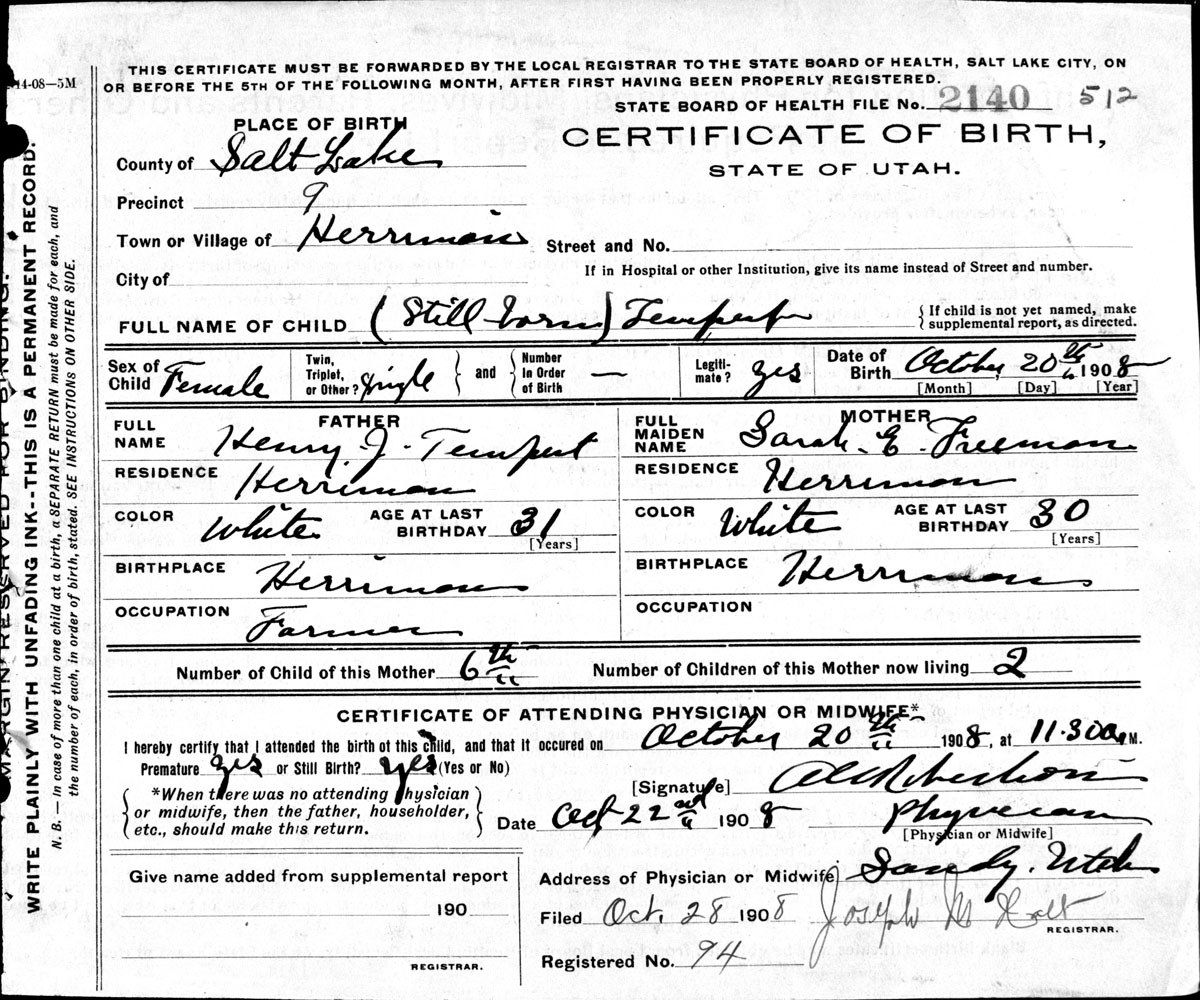 14-08—5M
THIS CERTIFICATE MUST BE FORWARDED BY THE LOCAL REGISTRAR TO THE STATE BOARD OF HEALTH, SALT LAKE CITY, ON
OR BEFORE THE 5TH OF THE FOLLOWING MONTH, AFTER FIRST HAVING BEEN PROPERLY REGISTERED.
STATE BOARD OF HEALTH FILE No. 2140 512
PLACE OF BIRTH
CERTIFICATE OF BIRTH,
STATE OF UTAH.
County of Salt Lake
Precinct 9
Town or Village of Herriman Street and No.
If in Hospital or other Institution, give its name instead of Street and number.
City of
FULL NAME OF CHILD (Still born) Tempest { If child is not yet named, make supplemental report, as directed.
Sex of Child Female Twin, Triplet, or Other? Single } and { Number In Order of Birth — Legitimate? yes Date of Birth October 20th 1908
[Month] [Day] [Year]
FATHER MOTHER
FULL NAME Henry J. Tempest FULL MAIDEN NAME Sarah E. Freeman
RESIDENCE Herriman RESIDENCE Herriman
COLOR White AGE AT LAST BIRTHDAY 31 [Years] COLOR White AGE AT LAST BIRTHDAY 30 [Years]
BIRTHPLACE Herriman BIRTHPLACE Herriman
OCCUPATION Farmer OCCUPATION
Number of Child of this Mother 6th Number of Children of this Mother now living 2
CERTIFICATE OF ATTENDING PHYSICIAN OR MIDWIFE*
I hereby certify that I attended the birth of this child, and that it occured on October 20th 1908, at 11.30 a M.
Premature yes or Still Birth? yes (Yes or No)
[Signature] Robertson
{ *When there was no attending physician or midwife, then the father, householder, etc., should make this return. }
Date Oct 22nd 1908 Physician
[Physician or Midwife]
Give name added from supplemental report
190
REGISTRAR.
Address of Physician or Midwife Sandy. Utah
Filed Oct. 28 1908 Joseph M Holt
REGISTRAR.
Registered No. 94
MARGIN RESERVED FOR BINDING.
WRITE PLAINLY WITH UNFADING INK--THIS IS A PERMANENT RECORD.
N. B.—In case of more than one child at a birth, a SEPARATE RETURN must be made for each, and
the number of each, in order of birth, stated. SEE INSTRUCTIONS ON OTHER SIDE.